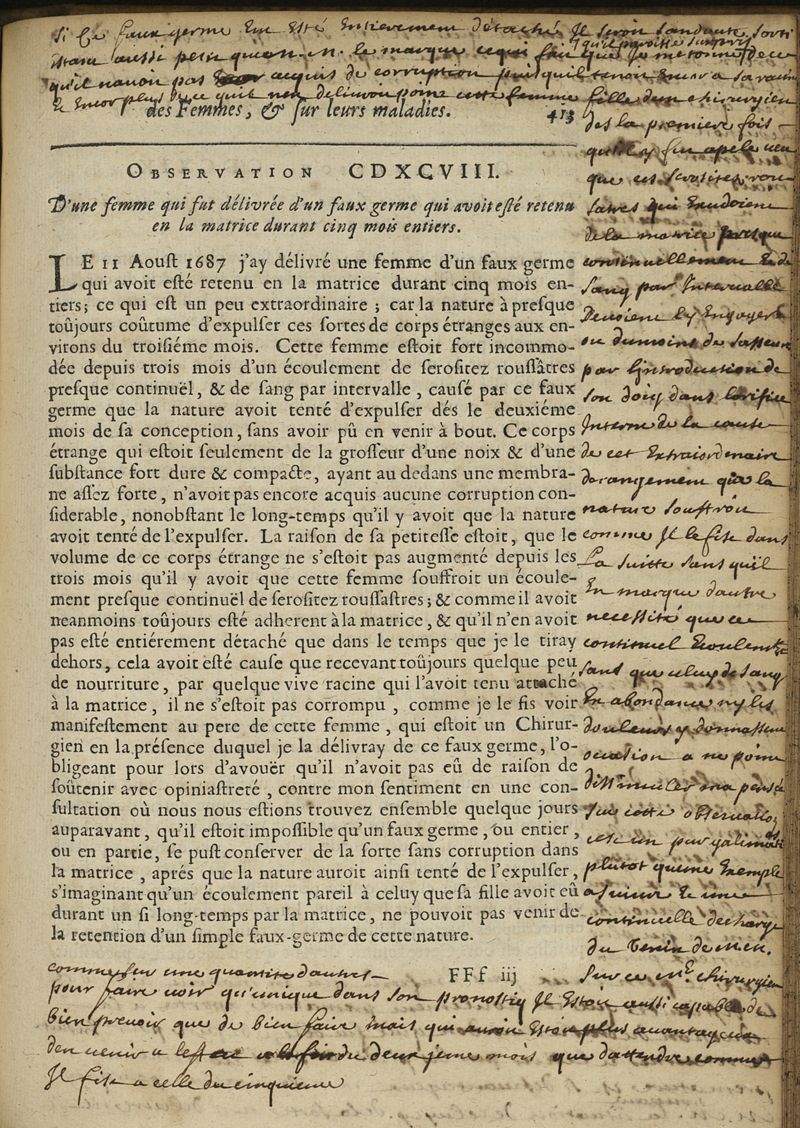 si ce faux germe eut esté entierement détaché il seroit sans doute sorti
qu'il
qu'il n'avoit pas acquis de corruption puisquil tenoit encor a sa racine
et encor plus de ce quil ne delivra point cette femme fille d'un chirurgien
des Femmes, & sur leurs maladies. 413
OBSERVATION CDXCVIII.
D'une femme qui fut délivrée d'un faux germe qui avoit esté retenu
en la matrice durant cinq mois entiers.
LE 11 Aoust 1687 j'ay délivré une femme d'un faux germe
qui avoit esté retenu en la matrice durant cinq mois en-
tiers; ce qui est un peu extraordinaire; car la nature à presque
toûjours coûtume d'expulser ces sortes de corps étranges aux en-
virons du troisiéme mois. Cette femme estoit fort incommo-
dée depuis trois mois d'un écoulement de serositez roussâtres
presque continuël, & de sang par intervalle, causé par ce faux
germe que la nature avoit tenté d'expulser dés le deuxiéme
mois de sa conception, sans avoir pû en venir à bout. Ce corps
étrange qui estoit seulement de la grosseur d'une noix & d'une
substance fort dure & compacte, ayant au dedans une membra-
ne assez forte, n'avoit pas encore acquis aucune corruption con-
siderable, nonobstant le long-temps qu'il y avoit que la nature
avoit tenté de l'expulser. La raison de sa petitesse estoit, que le
volume de ce corps étrange ne s'estoit pas augmenté depuis les
trois mois qu'il y avoit que cette femme souffroit un écoule-
ment presque continuël de serositez roussastres; & comme il avoit
neanmoins toûjours esté adherent à la matrice, & qu'il n'en avoit
pas esté entiérement détaché que dans le temps que je le tiray
dehors, cela avoit esté cause que recevant toûjours quelque peu
de nourriture, par quelque vive racine qui l'avoit tenu attaché
à la matrice, il ne s'estoit pas corrompu, comme je le fis voir
manifestement au pere de cette femme, qui estoit un Chirur-
gien en la presence duquel je la délivray de ce faux germe, l'o-
bligeant pour lors d'avouër qu'il n'avoit pas eû de raison de
soûtenir avec opiniastreté, contre mon sentiment en une con-
sultation où nous nous estions trouvez ensemble quelque jours
auparavant, qu'il estoit impossible qu'un faux germe, ou entier,
ou en partie, se pust conserver de la sorte sans corruption dans
la matrice, aprés que la nature auroit ainsi tenté de l'expulser,
s'imaginant qu'un écoulement pareil à celuy que sa fille avoit eû
durant un si long-temps par la matrice, ne pouvoit pas venir de
la retention d'un simple faux-germe de cette nature.
FFf iij
des la premiere fois
que ces serositez rous
satres qui
de la matrice presque
continuellement et du
sang par intervalle
devoient l'y engager
ou du moins de s'asseurer
par l'introduction de
son doigt dans l'orifice
interne de la cause
de cet extraordinaire
derangement que la
nature souffroit
comme il le fit dans
la suitte sans quil
en marque d'autre
necessité que ce
continuel ecoulement
sans que celuy de sang
en abondance ny les
douleurs y donnassent
occasion a ne point
dissimuler ma pensée
sur cette observation
c'est un pur galimatias
plutot qu'une exemple
a suivre et une
continuelle decharge
du venin de
sur ce chirurgien
comme sur une quantité d'autres
pour faire voir qu'unique dans son pronostiq il estoit aussi capable de
bien prevoir que de bien faire mais qui
d'en venir a deuxieme mois que d'attendre comme
il fist a celle du cinquieme